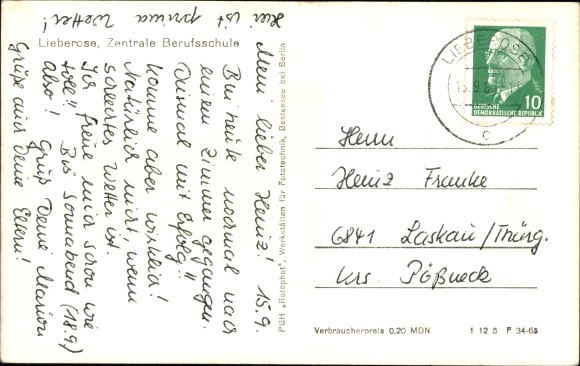 Lieberose, Zentrale Berufsschule
Mein lieber Heinz! 15.9.
Bin heute nochmal nach
einem Zimmer gegangen.
Diesmal mit Erfolg!!
Komme aber wirklich!
Natürlich nicht, wenn
schlechtes Wetter ist.
Ich freue mich schon wie
toll!! Bis Sonnabend (18.9)
also! Gruß Deine Marion
Grüße auch Deine Eltern!
Hier ist prima Wetter!
PGH „Rotophot", Werkstätten für Fototechnik, Bestensee bei Berlin
LIEBEROSE
10
DEUTSCHE
DEMOKRATISCHE REPUBLIK
Herrn
Heinz Franke
6841 Laskau/Thürg.
Krs. Pößneck
Verbraucherpreis 0,20 MDN 1 12 5 F 34-65